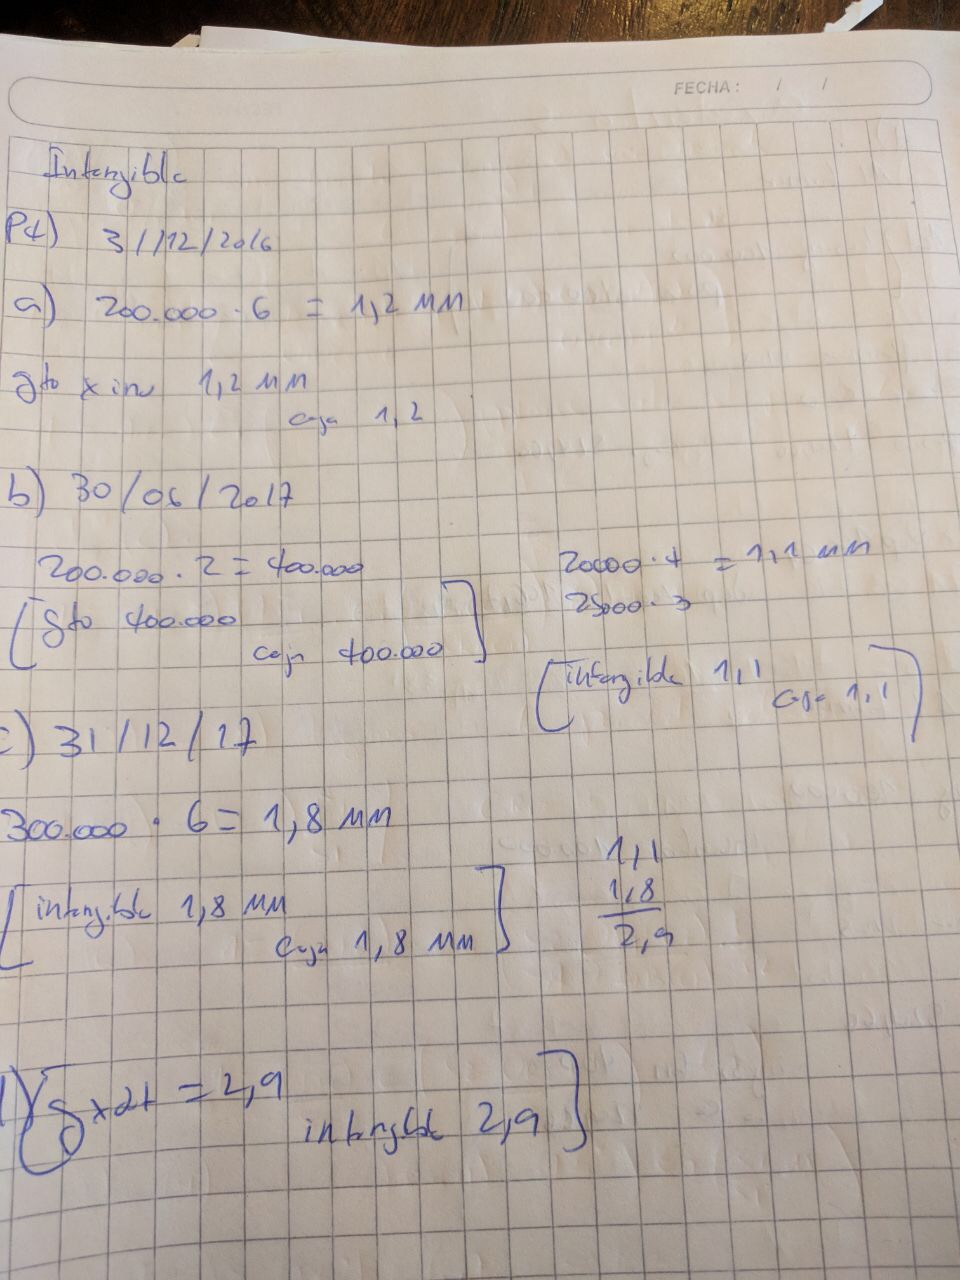 FECHA: / /
Intangible
P4) 31/12/2016
a) 200.000 · 6 = 1,2 MM
gto x inv 1,2 MM
caja 1,2
b) 30/06/2017
200.000 · 2 = 400.000
[gto 400.000
caja 400.000]
20000 · 4 = 1,1 MM
25000 · 3
[intangible 1,1
caja 1,1]
c) 31/12/17
300.000 · 6 = 1,8 MM
[intangible 1,8 MM
caja 1,8 MM]
1,1
1,8
2,9
= 2,9
intangible 2,9]